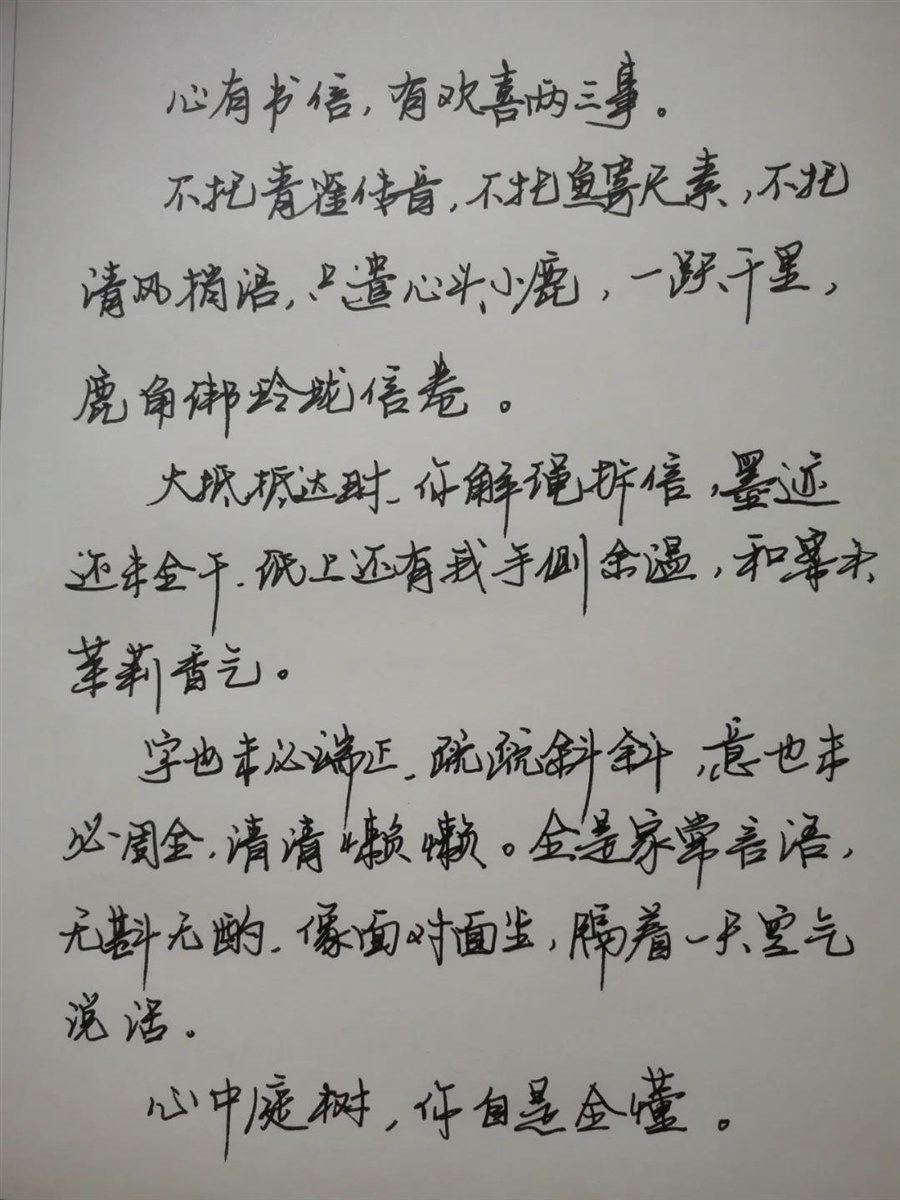 心有书信，有欢喜两三事。
不托青雀传音，不托鱼寄尺素，不托
清风捎语，只遣心头小鹿，一跃千里，
鹿角绑玲珑信卷。
大抵抵达时、你解绳拆信，墨迹
还未全干、纸上还有我手侧余温，和案头
茉莉香气。
字也未必端正、疏疏斜斜，意也未
必周全，清清懒懒。全是家常言语，
无斟无酌、像面对面坐，隔着一尺空气
说话。
心中庭树，你自是全懂。